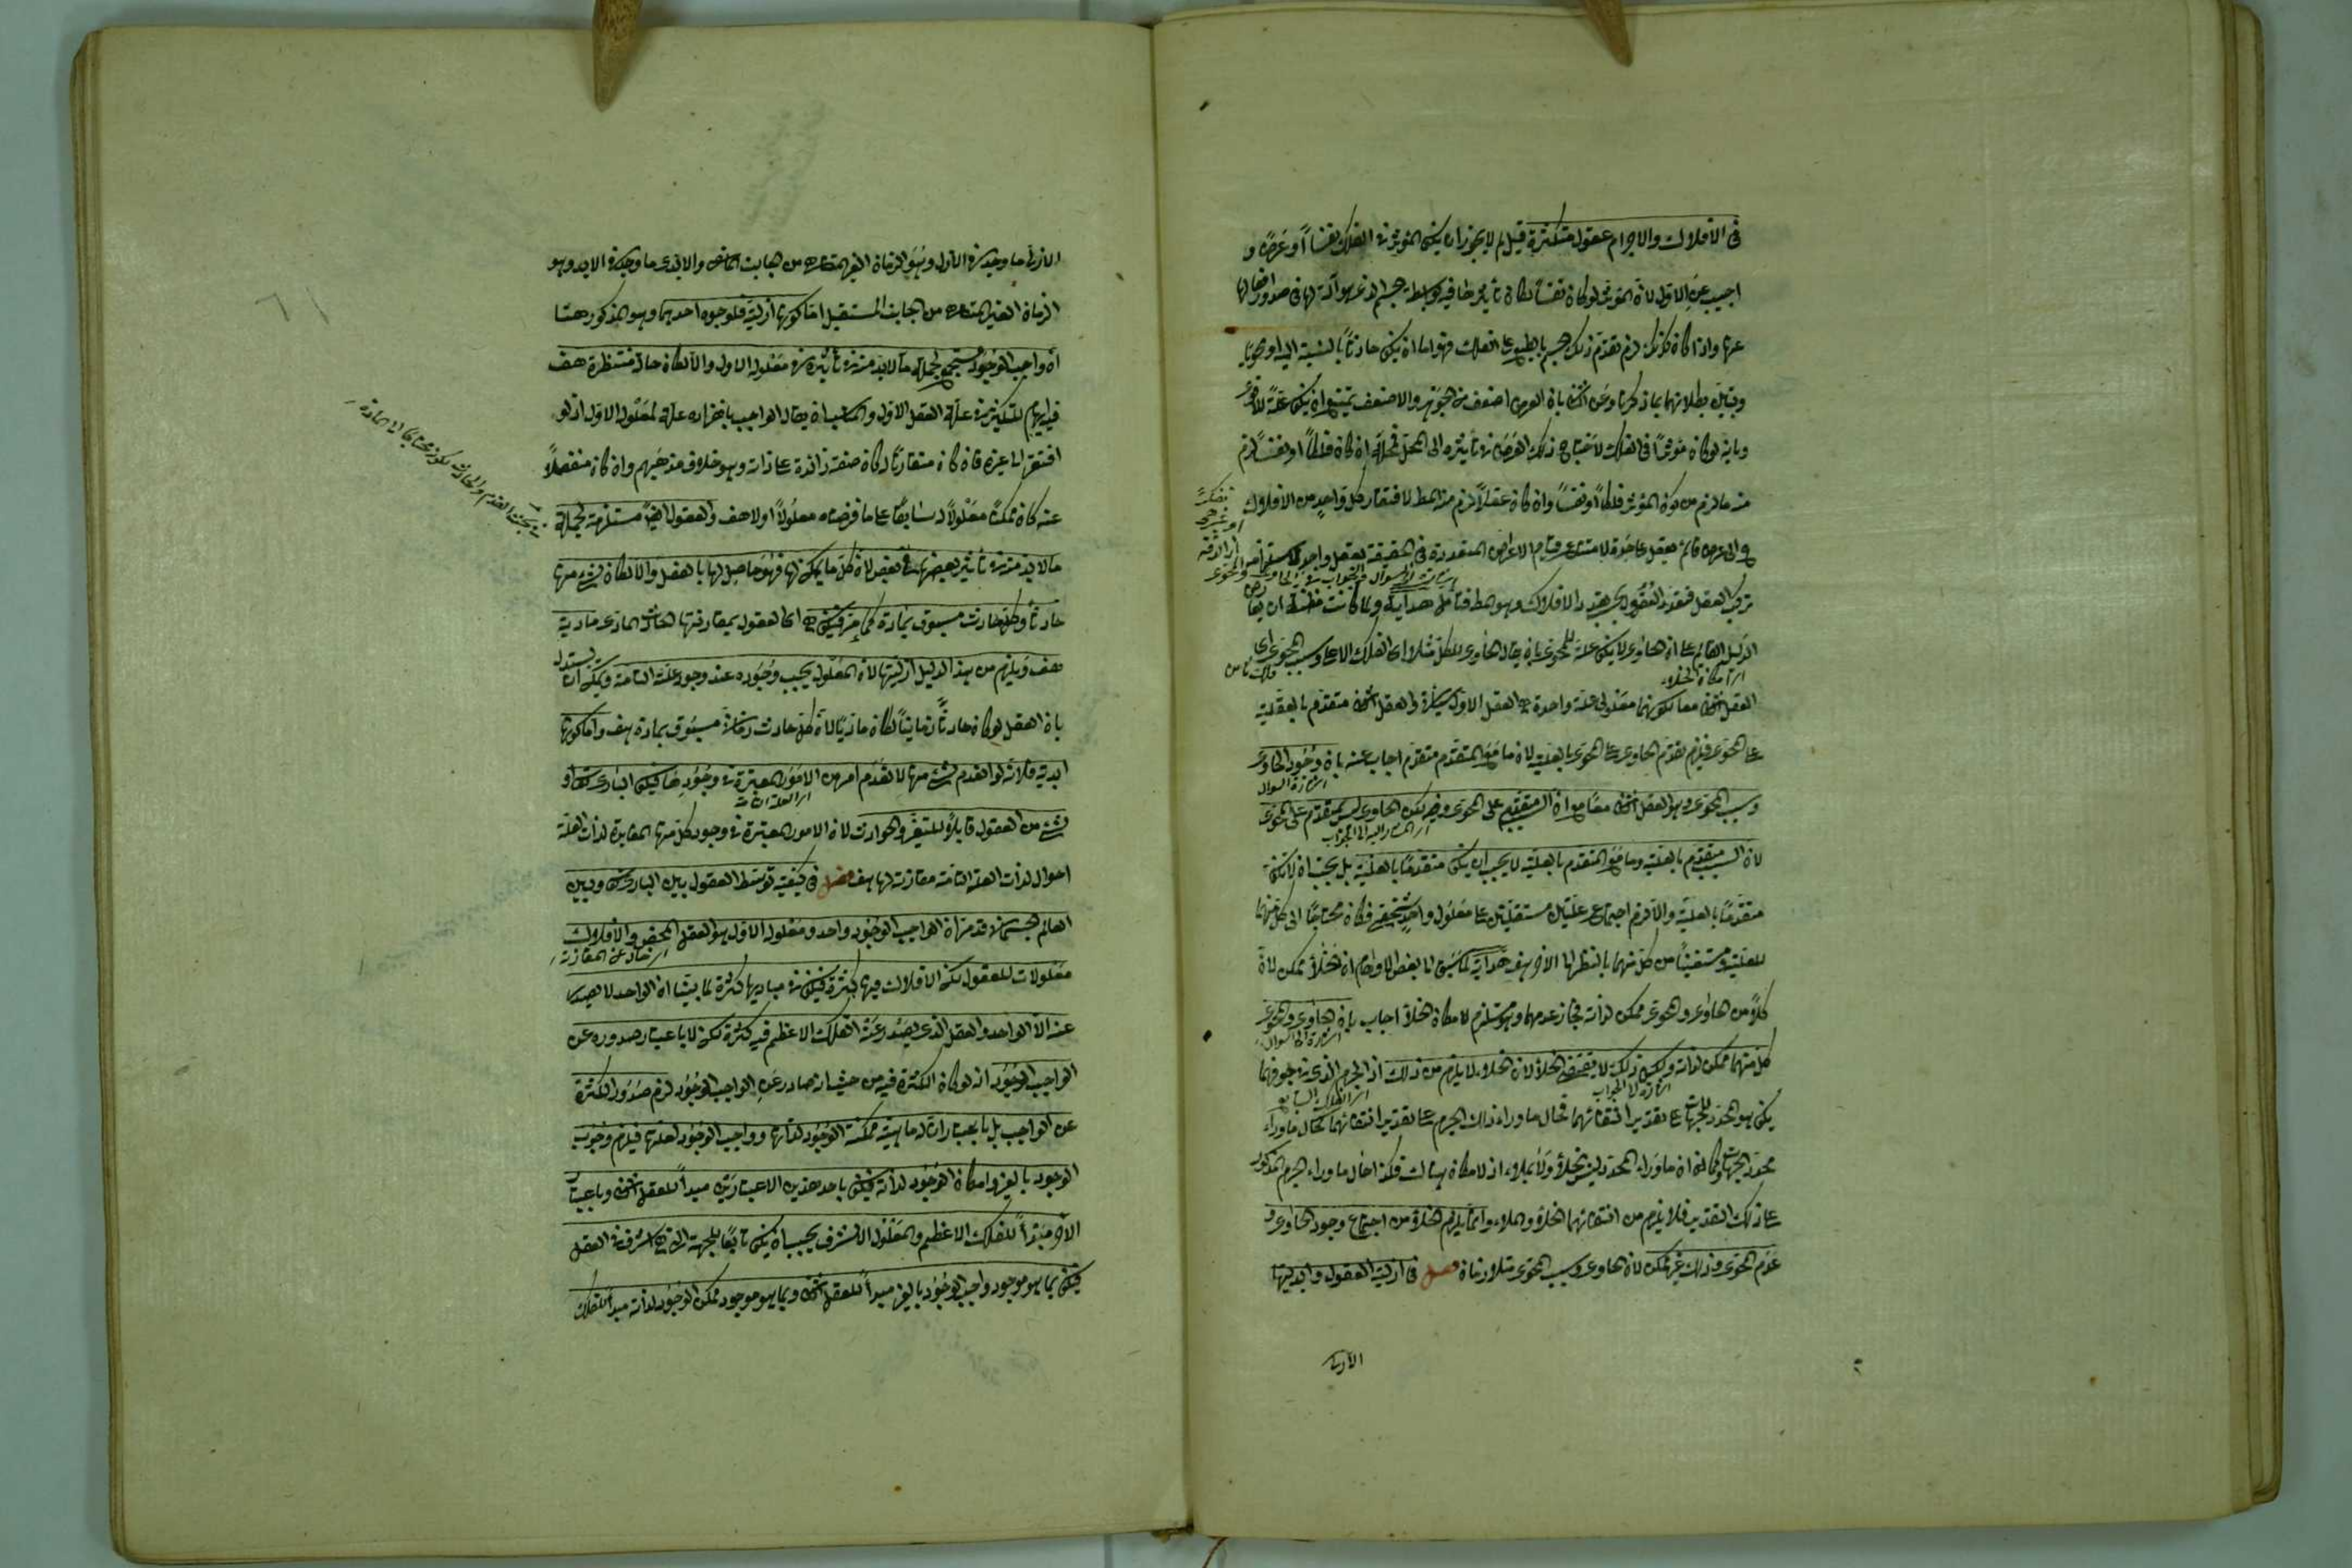 في الافلاك والاجرام عقول متكثرة قيل لم لا يجوز ان يكون المؤثر في الفلك نفسا او عرضا و
اجيب عن الاول لان المؤثر لو كان نفسا لكان تأثيرها فيه بواسطة جسم الذي هو آلة لها في صدور افعالها
عنها واذا كان كذلك لزم تقدم ذلك الجسم بالطبع على الفلك فهو اما ان يكون حاويا بالنسبة اليه او محويا
وتبين بطلانهما بما ذكرنا وعن الثاني بان العرض اضعف من الجوهر والاضعف يمتنع ان يكون علة للاقوى
وبانه لو كان مؤثرا في الفلك لاحتاج ذلك العرض في تأثيره الى المحل فمحله ان كان فلكا او نفسا لزم
منه ما لزم من كون المؤثر فلكا او نفسا وان كان عقلا لزم منه المط لافتقار كل واحد من الافلاك
الى عرض قائم بعقل على حدة لامتناع قيام الاعراض المتعددة في الحقيقة بعقل واحد
العقول بحسب تعدد الافلاك وهو المط فتأمل هداية ولما كانت مظنة ان يعارض
الدليل القائم على ان الحاوي لا يكون علة للمحوي بان يقال الحاوي للكل مثلا اى الفلك الاعلى وسبب المحوي اى
العقل الثاني معا لكونهما معلولي علة واحدة هي العقل الاول والعقل الثاني متقدم بالعلية
على المحوي فيلزم تقدم الحاوي على المحوي بالعلية لان ما مع المتقدم متقدم اجاب عنه بان وجود الحاوي
اشارة السؤال
وسبب المحوي وهو العقل الثاني معا مع ان السبب متقدم على المحوي ولكن الحاوي ليس بمتقدم على المحوي
لان السبب متقدم بالعلية وما مع المتقدم بالعلية لا يجب ان يكون متقدما بالعلية بل يجب ان لا يكون
متقدما بالعلية والا لزم اجتماع علتين مستقلتين على معلول واحد شخصي فكان محتاجا الى كل منهما
للعلية ومستغنيا من كل منهما بالنظر الى الاخر هف هداية لما سبق الى بعض الاوهام ان الخلأ ممكن لان
كلا من الحاوي والمحوي ممكن لذاته فجاز عدمهما وهو مستلزم لامكان الخلأ اجاب بان الحاوي والمحوي
اشارة الى السؤال
كل منهما ممكن لذاته ولكن ذلك لا يقتضي الخلأ لان الخلاء لا يلزم من ذلك اذ الجرم الذي في جوفهما
اشارة الى الجواب
يكون هو المحدد للجهات على تقدير انتفائهما فحال ما وراء ذلك الجرم على تقدير انتفائهما كحال ما وراء
محدد الجهات وكما ان ما وراء المحدد ليس بخلأ ولا بملاء اذ لا مكان هناك فكذا حال ما وراء الجرم المذكور
على ذلك التقدير فلا يلزم من انتفائهما الخلأ والملاء وانما يلزم الخلأ من اجتماع وجود الحاوي و
عدم المحوي وذلك غير ممكن لان الحاوي وسبب المحوي متلازمان فصل في ازلية العقول وابديتها
الازلي ما وجد في الازل وهو الزمان الغير المتناهي من جانب الماضي والابدي ما وجد في الابد وهو
الزمان الغير المتناهي من الجانب المستقبل اما كونها ازلية فلوجوه احدهما وهو المذكور ههنا
ان واجب الوجود مستجمع لجملة ما لا بد منه في تأثيره في معلوله الاول والا لكان حالة منتظرة هف
فيه ايهام للتكثير في علة العقل الاول والمناسب ان يقال الواجب بانفراده علة لمعلوله الاول اذ لو
افتقر الى غيره فان كان مقارنا له كان صفة زائدة على ذاته وهو خلاف مذهبهم وان كان منفصلا
عنه كان ممكنا معلولا له سابقا على ما فرضناه معلولا اولا هف والعقول ايضا مستلزمة لجملة
ما لا بد منه في تأثير بعضها في بعض لان كل ما يمكن لها فهو حاصل لها بالفعل والا لكان شيء منها
حادثا وكل حادث مسبوق بمادة كما مر فيكون اى العقول بمقارنتها الحادث المادي مادية
هف ويلزم من هذا الدليل ازليتها لان المعلول يجب وجوده عند وجود علته التامة ويمكن ان يستدل
بان العقل لو كان حادثا زمانيا لكان ماديا لان كل حادث زماني مسبوق بمادة هف واما كونها
ابدية فلانه لو انعدم شيء منها لانعدم امر من الامور المعتبرة في وجودها فيكون الباري تعالى او
شيء من العقول قابلا للتغير والحوادث لان الامور المعتبرة في وجود كل منها المغايرة لذات العلة
احوال لذات العلة التامة مقارنة لها هف فصل في كيفية توسط العقول بين الباري وبين
العالم الجسماني قد مر ان الواجب الوجود واحد ومعلوله الاول هو العقل المحض والافلاك
معلولات للعقول لكن الافلاك فيها كثرة فيكون في مباديها كثرة لما بينا ان الواحد لا يصدر
عنه الا الواحد والعقل الذي يصدر عنه الفلك الاعظم فيه كثرة لكن لا باعتبار صدوره عن
الواجب الوجود اذ لو كان الكثرة فيه من حيث انه صادر عن الواجب الوجود لزم صدور الكثرة
عن الواجب بل باعتبار ان له ماهية ممكنة الوجود لذاتها وواجب الوجود لعلتها فيلزم وجوب
الوجود بالغير وامكان الوجود لذاته فيكون باحد هذين الاعتبارين مبدأ للعقل الثاني وباعتبار
الاخر مبدأ للفلك الاعظم والمعلول الاشرف يجب ان يكون تابعا للجهة التي هي اشرف في العقل
فيكون بما هو موجود واجب الوجود بالغير مبدأ للعقل الثاني وبما هو موجود ممكن الوجود لذاته مبدأ للفلك